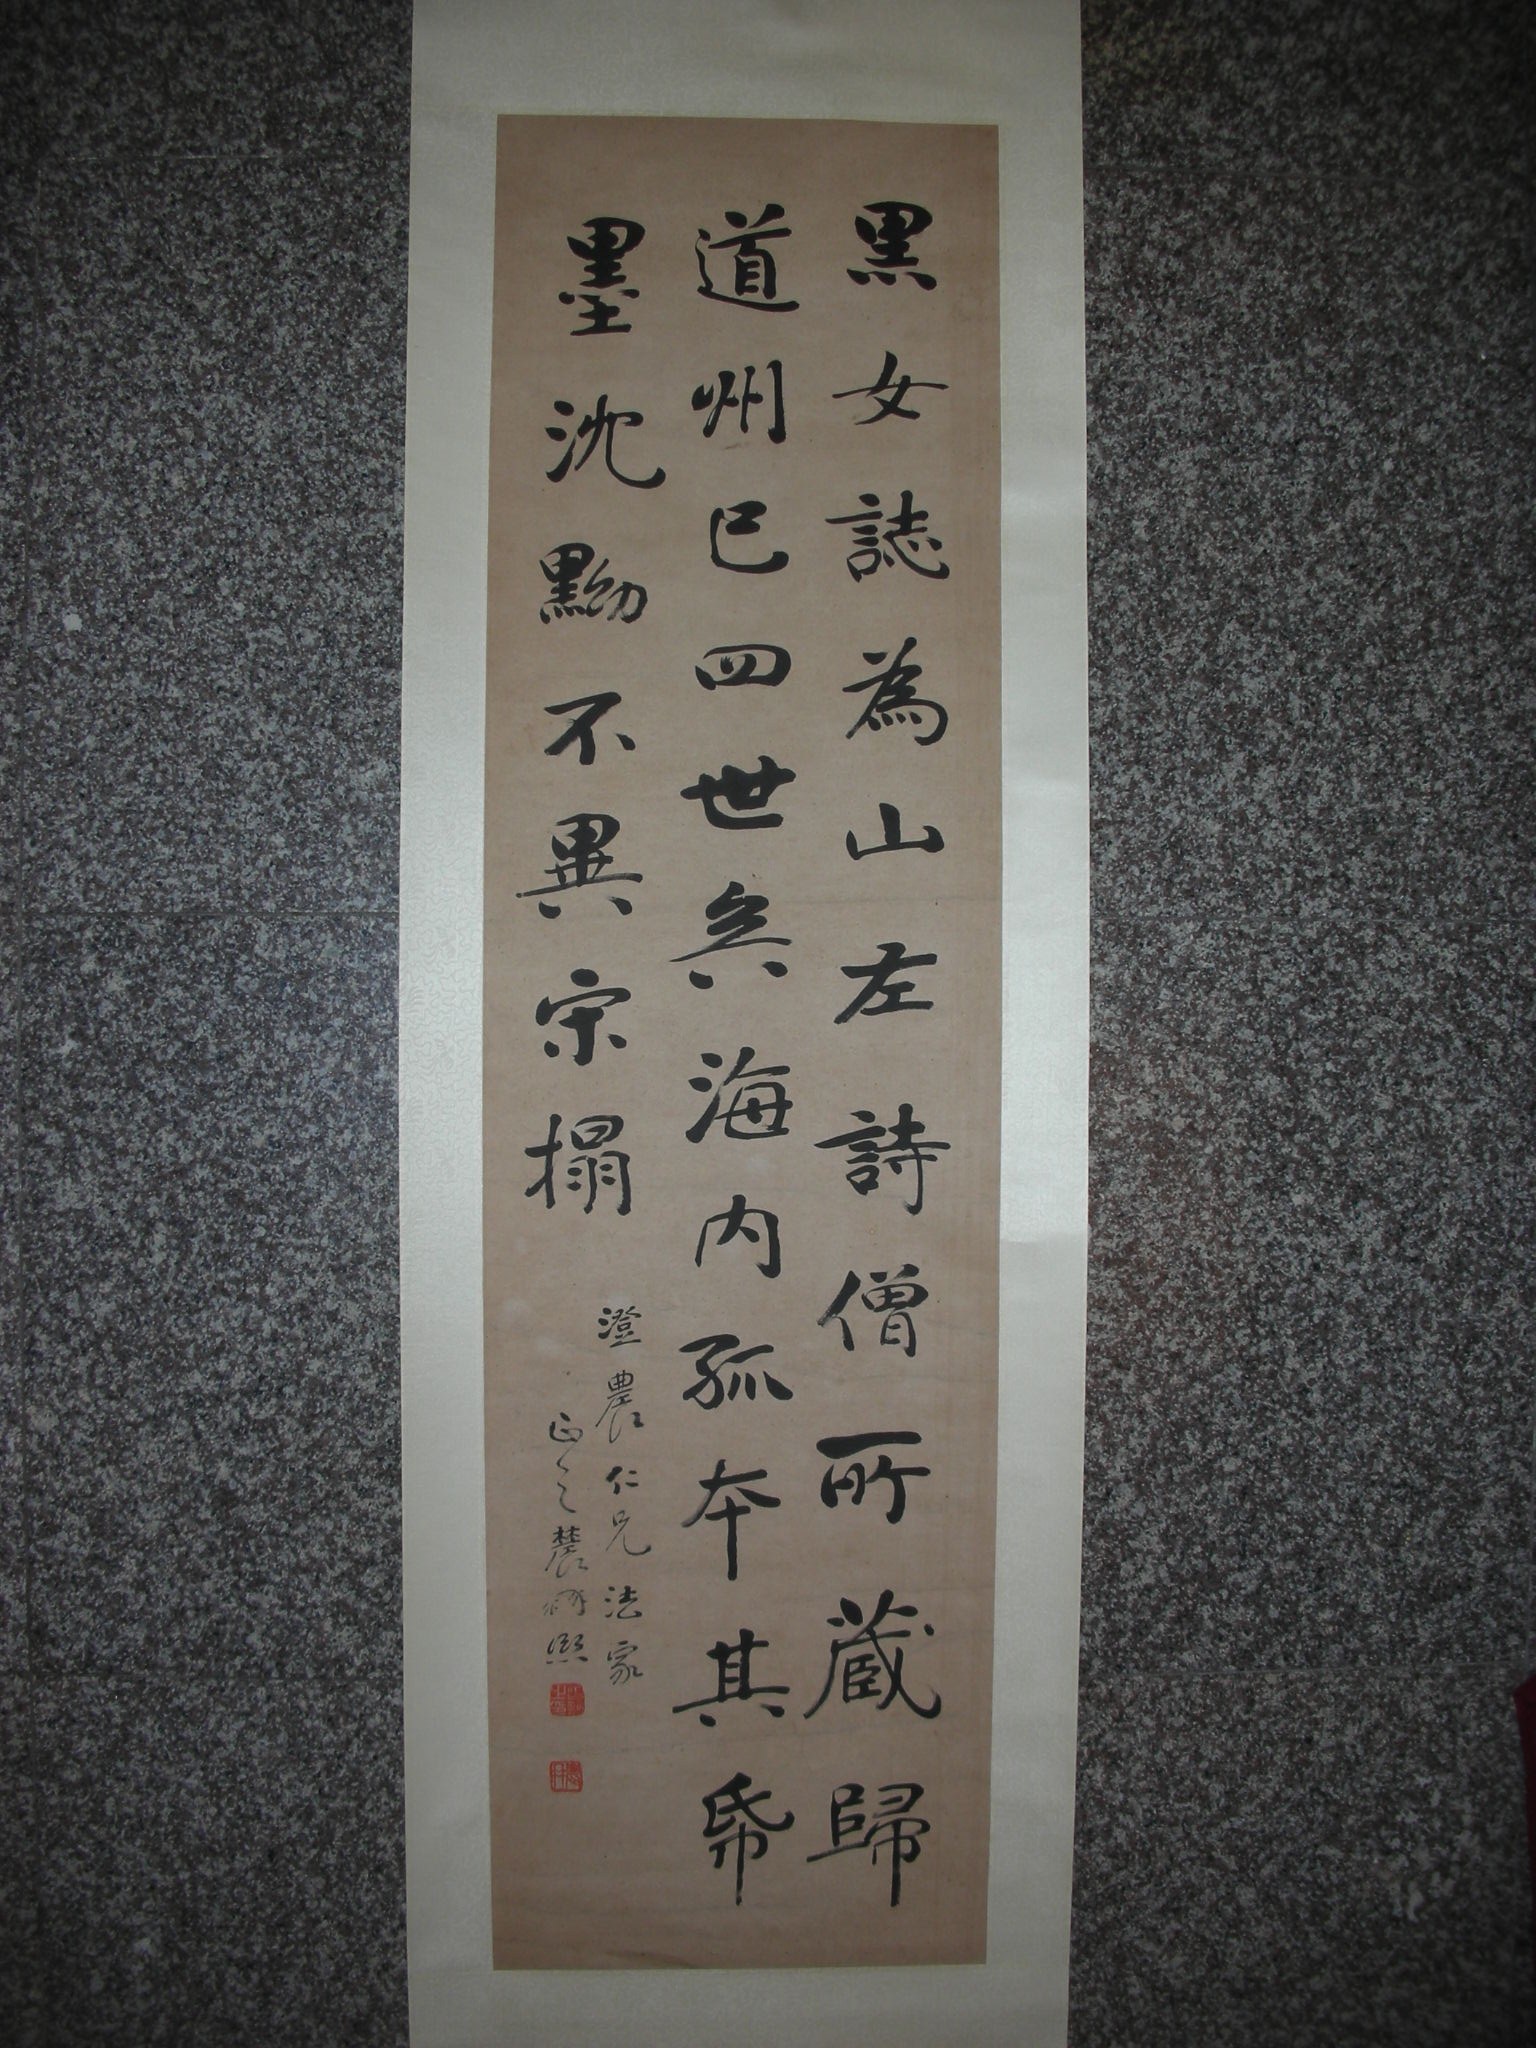 黑女誌為山左詩僧所蔵歸
道州已四世矣海内孤本其帋
墨沈黝不異宗搨
澄農仁兄法家
正之農髯熙